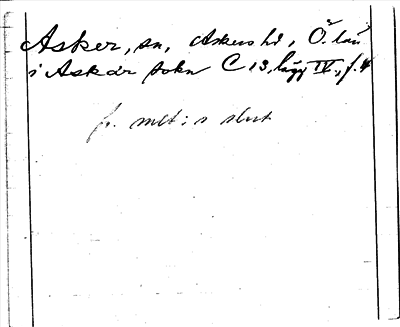 Asker, sn, Askers hd, Ö. län
i Askær sokn C 13, lägg IV, f. 4
fr. mlt: s slut